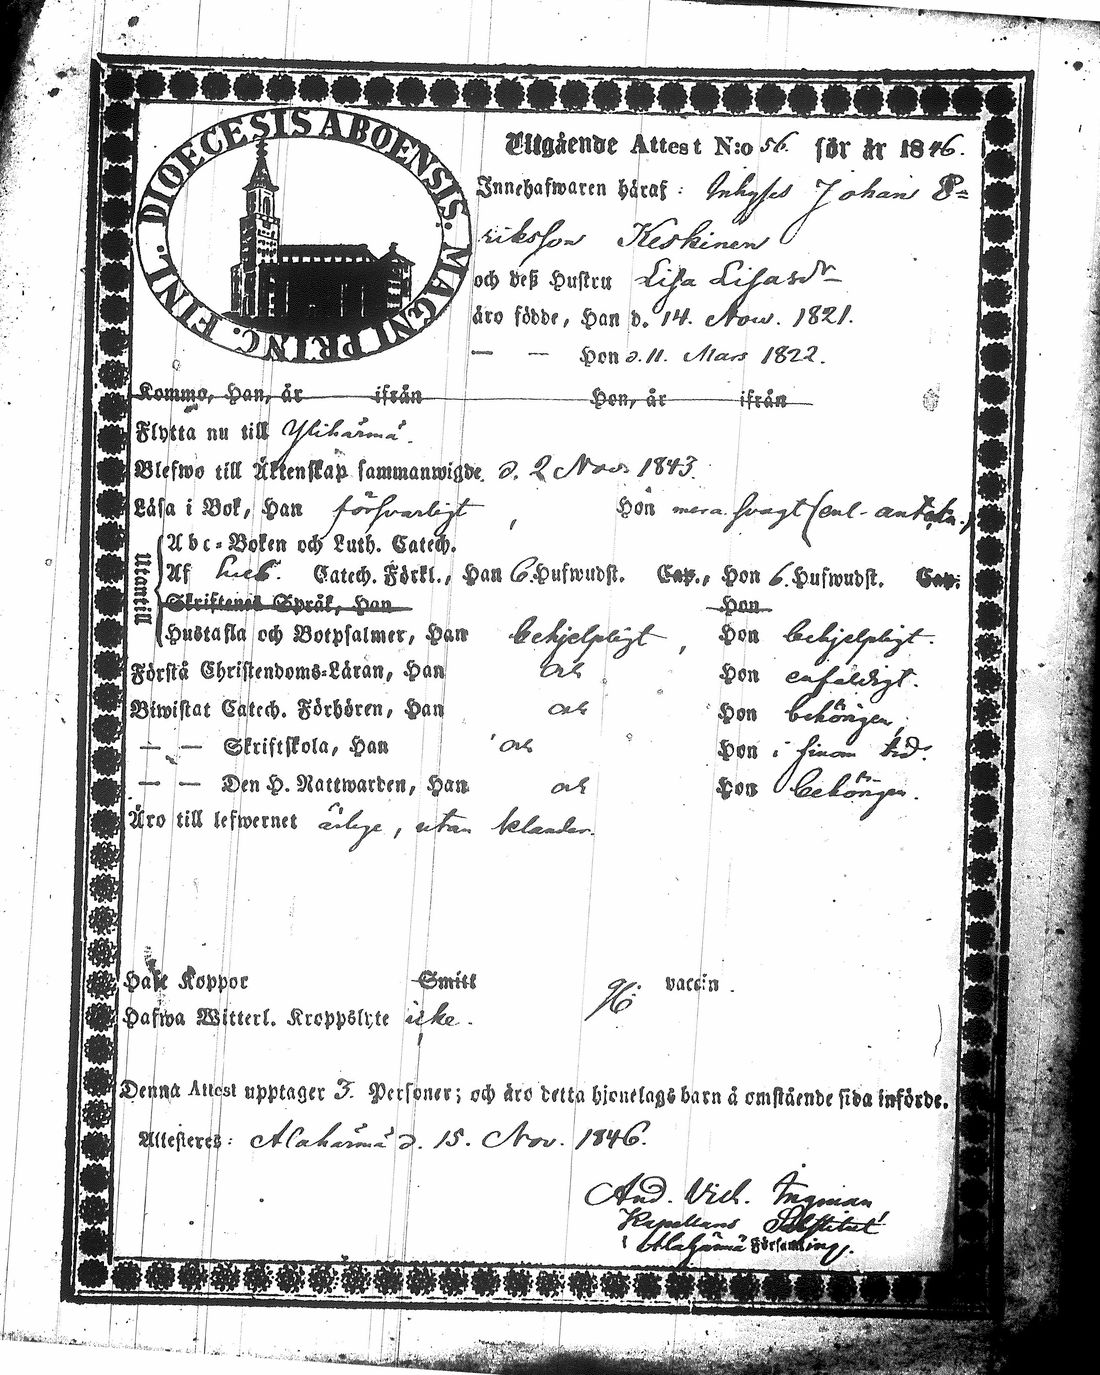 DIOECESIS ABOENSIS. MAGNI PRINC. FINL.
Utgående Attest N:o 56. för år 1846.
Innehafwaren häraf: Inhyses Johan E=
riksson Keskinen
och deß Hustru Lisa Lisasdr
äro födde, Han d. 14. Nov. 1821.
— — Hon d. 11. Mars 1822.
Kommo, Han, år ifrån Hon, år ifrån
Flytta nu till Ylihärmä.
Blefwo till Äktenskap sammanwigde d. 2 Nov. 1843.
Läsa i Bok, Han försvarligt, Hon mera svagt (enl. anteckn.)
Utantill
Abc-Boken och Luth. Catech.
Af Catech. Förkl., Han 6. Hufwudst. Cap., Hon 6. Hufwudst. Cap.
Skriftenes Språk, Han Hon
Hustafla och Botpsalmer, Han behjelpligt, Hon behjelpligt.
Förstå Christendoms-Läran, Han och Hon enfaldigt.
Biwistat Catech. Förhören, Han och Hon behörigen,
— — Skriftskola, Han och Hon i sinom tid.
— — Den H. Nattwarden, Han och Hon behörigen.
Äro till lefwernet ärlige, utan klander.
Haft Koppor Smitt vaccin.
Hafwa Witterl. Kroppslyte icke.
Denna Attest upptager 3. Personer; och äro detta hjonelags barn å omstående sida införde.
Attesteres: Alahärmä d. 15. Nov. 1846.
And. Vilh. Ingman
Kapellans Substitut
i Alahärmä Församling.